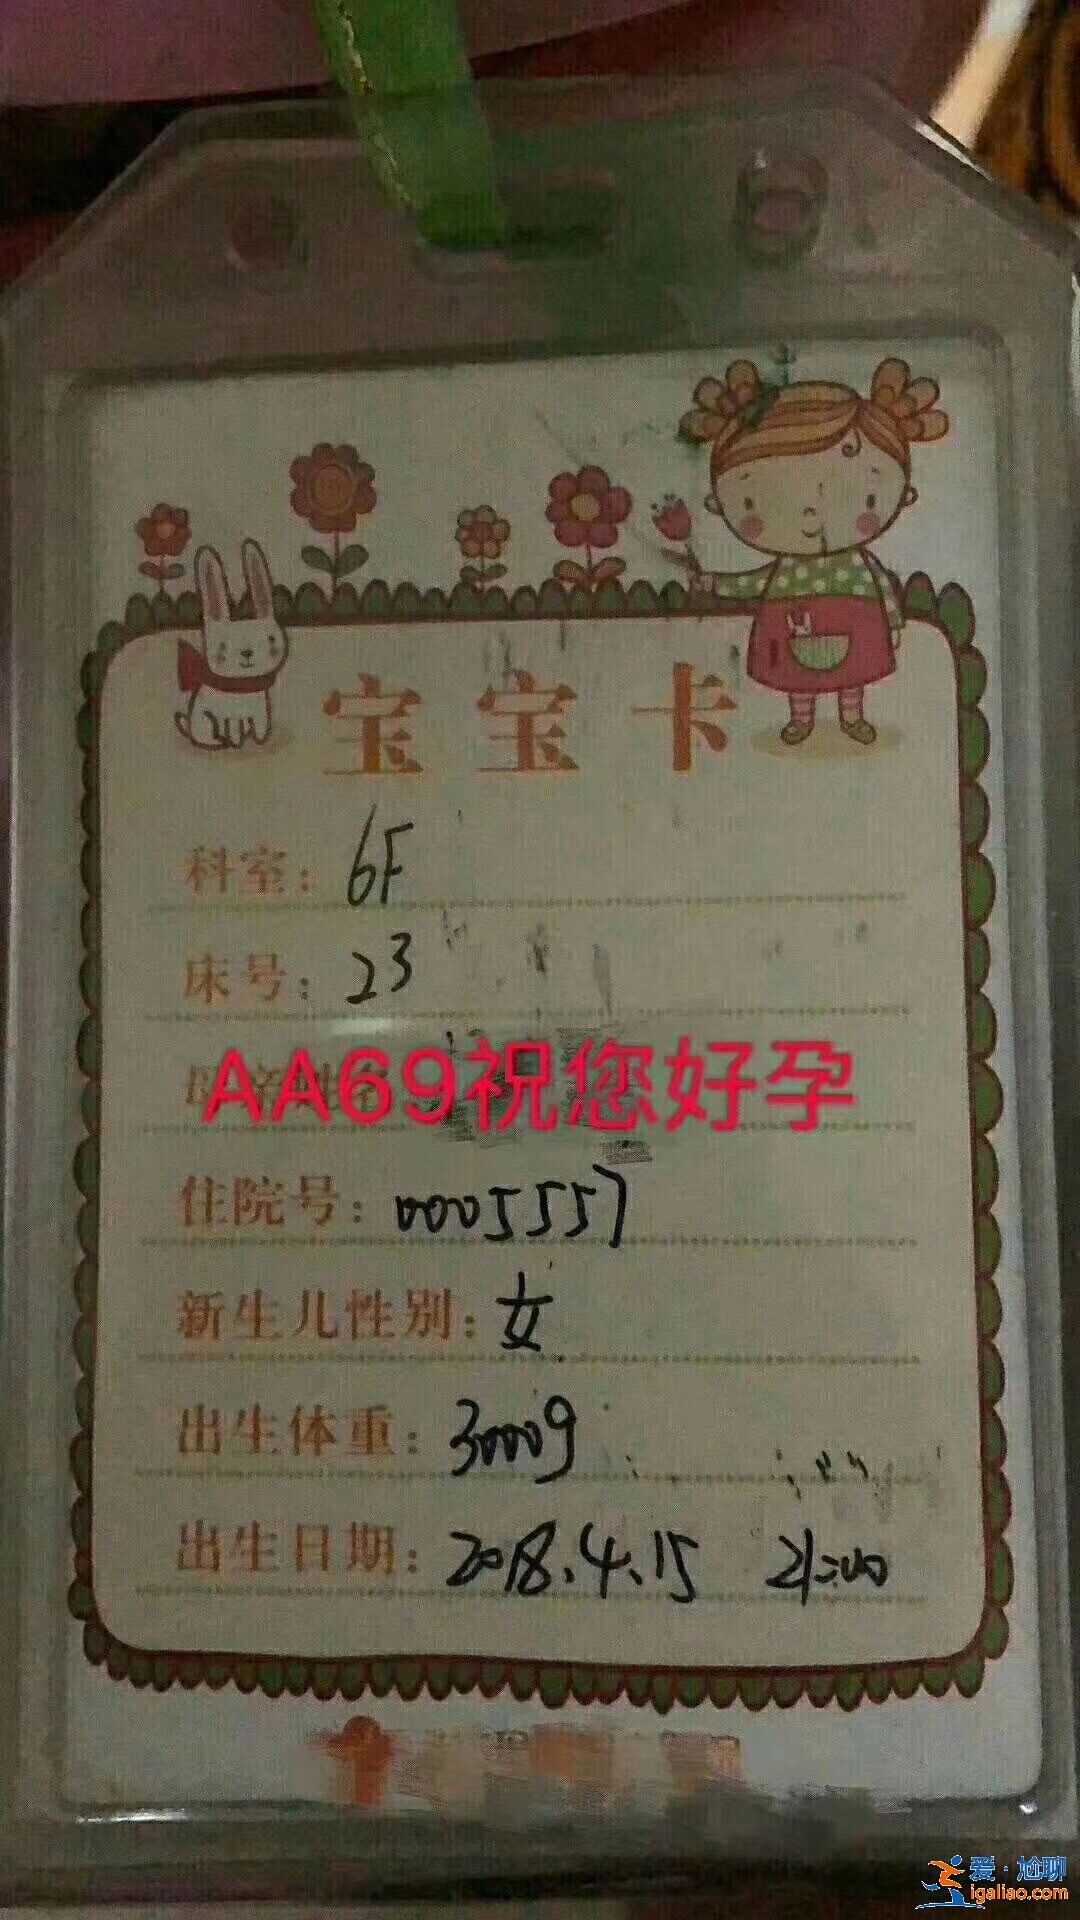 宝宝卡
科室: 6F
床号: 23
AA69祝您好孕
住院号: 0005557
新生儿性别: 女
出生体重: 3000g
出生日期: 2018.4.15 21:00
爱·尬聊
igaliao.com